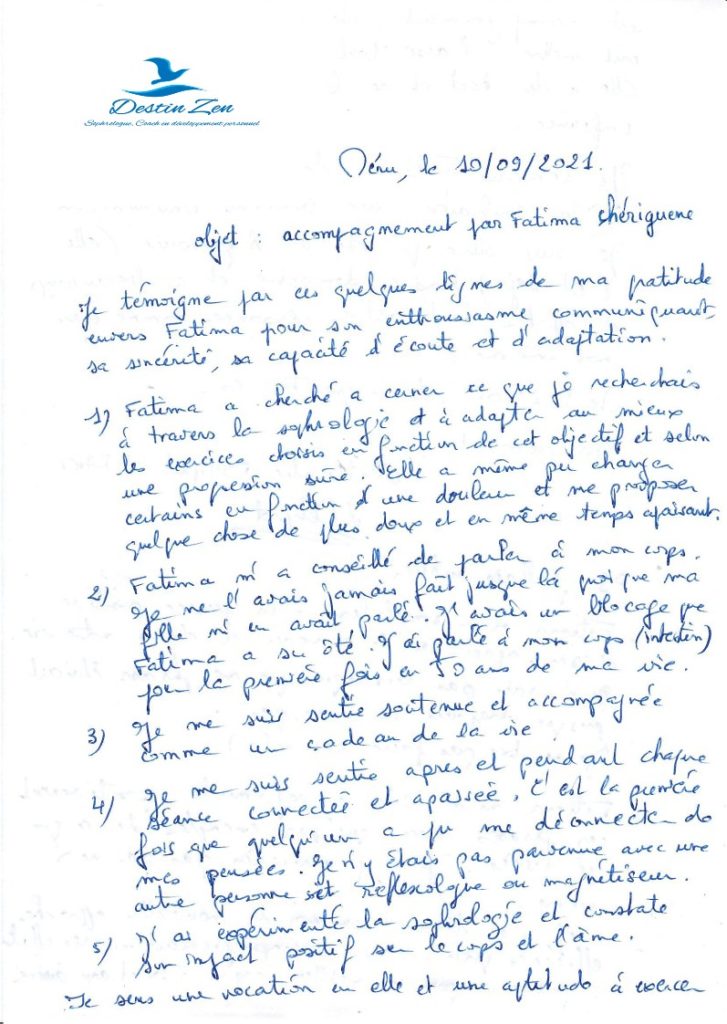 Destin Zen
Sophrologue, Coach en développement personnel
Méru, le 10/09/2021.
objet : accompagnement par Fatima Chériguene
Je témoigne par ces quelques lignes de ma gratitude
envers Fatima pour son enthousiasme communiquant,
sa sincérité, sa capacité d'écoute et d'adaptation.
1) Fatima a cherché a cerner ce que je recherchais
à travers la sophrologie et à adapter au mieux
les exercices choisis en fonction de cet objectif et selon
une progression sûre. Elle a même pu changer
certains en fonction d'une douleur et me proposer
quelque chose de plus doux et en même temps apaisant.
2) Fatima m'a conseillé de parler à mon corps.
Je ne l'avais jamais fait jusque là quoique ma
fille m'en avait parlé. J'avais un blocage que
Fatima a su ôté. J'ai parlé à mon corps (intestin)
pour la première fois en 50 ans de ma vie.
3) Je me suis sentie soutenue et accompagnée
comme un cadeau de la vie
4) Je me suis sentie apres et pendant chaque
séance connectée et apaisée. C'est la première
fois que quelqu'un a pu me déconnecter de
mes pensées. Je n'y étais pas parvenue avec une
autre personne réflexologue ou magnétiseur.
5) J'ai expérimenté la sophrologie et constaté
son impact positif sur le corps et l'âme.
Je sens une vocation en elle et une aptitude à exercer